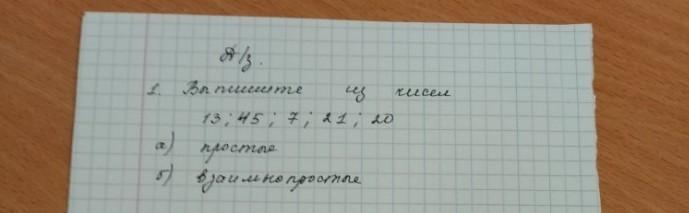 Д/з.
1. Выпишите из чисел
13; 45; 7; 21; 20
а) простые
б) взаимнопростые